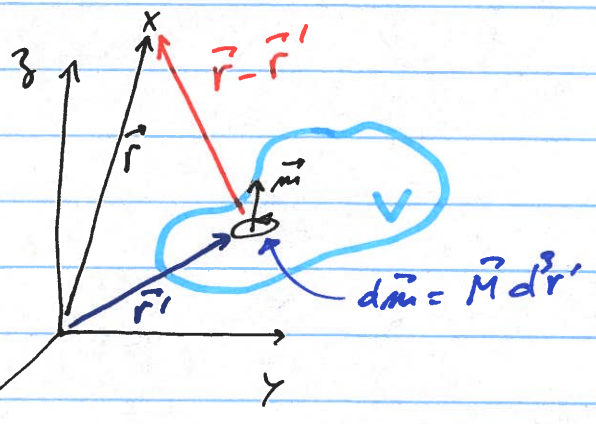 x
z
r⃗ - r⃗'
r⃗
m⃗
V
r⃗'
dm⃗ = M⃗ d³r'
y